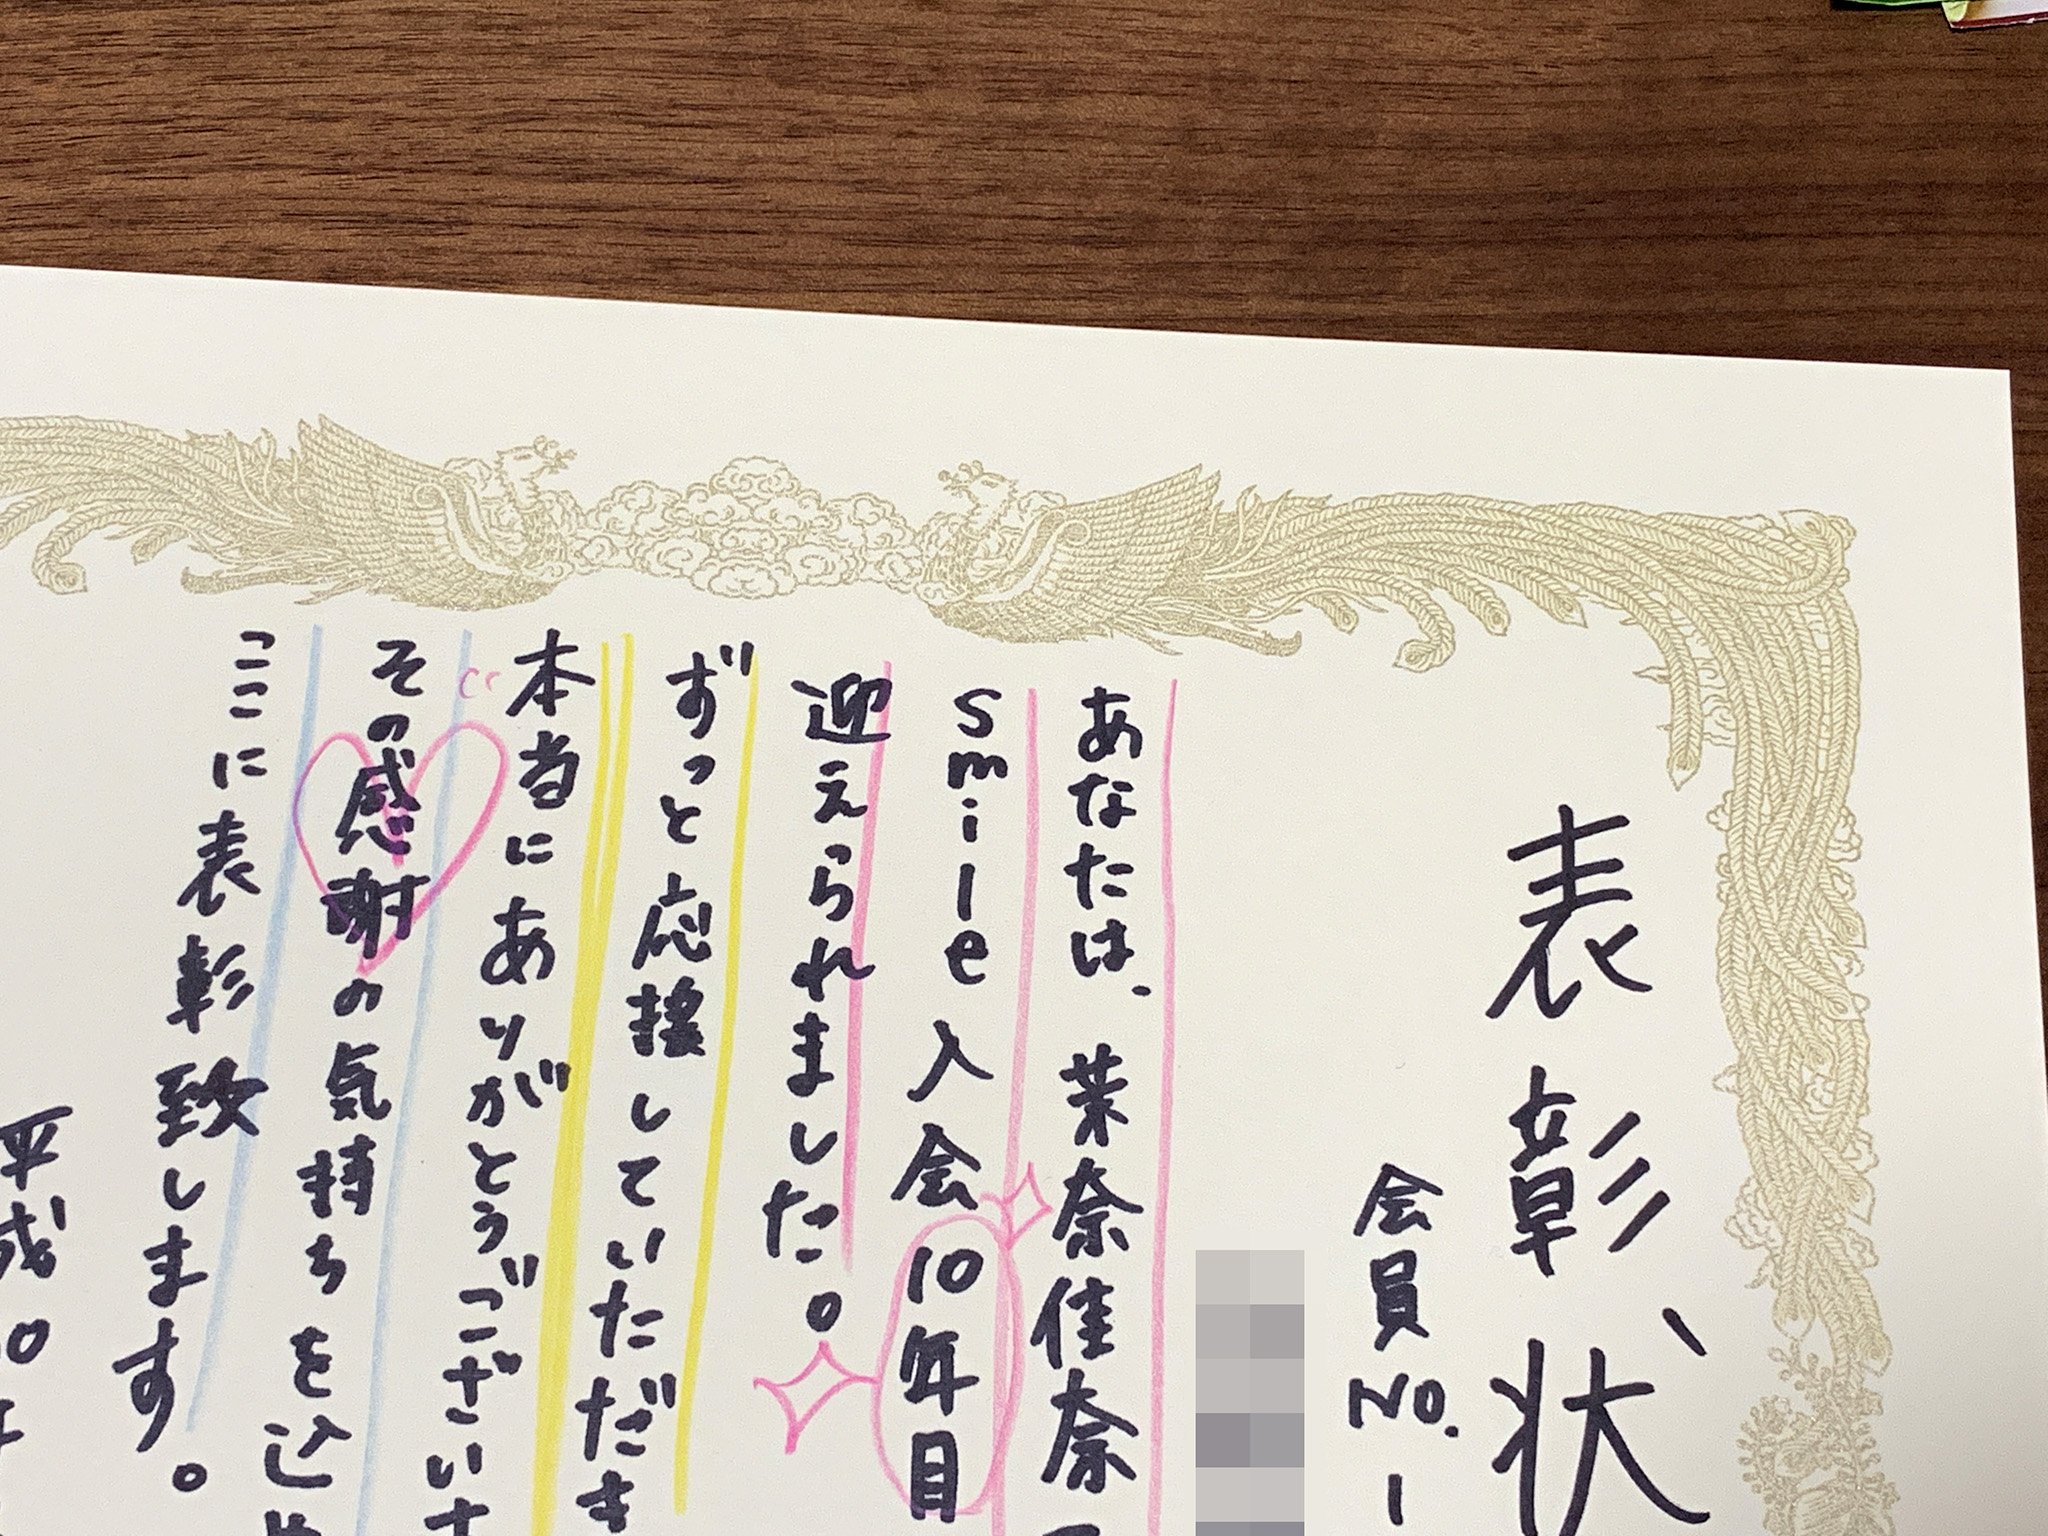 表彰状
会員No.1
あなたは、茉奈佳奈
smile入会10年目
迎えられました。
ずっと応援していただき
本当にありがとうございま
その感謝の気持ちを込め
ここに表彰致します。
平成